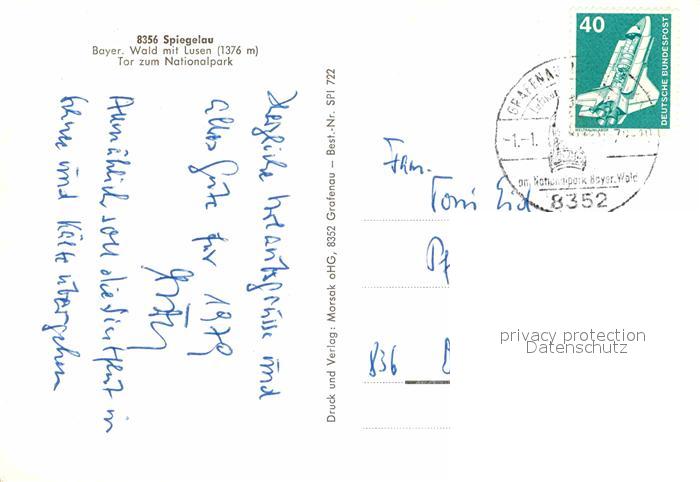 8356 Spiegelau
Bayer. Wald mit Lusen (1376 m)
Tor zum Nationalpark
Herzliche Urlaubsgrüsse und
alles Gute für 1979
Allmählich soll die Sintflut in
Schnee und Kälte übergehen
Druck und Verlag: Marsak oHG, 8352 Grafenau – Best.-Nr. SPI 722
40
DEUTSCHE BUNDESPOST
WELTRAUMLABOR
GRAFENAU
-1.-1.
am Nationalpark Bayer. Wald
8352
Fam.
Toni
836
privacy protection
Datenschutz